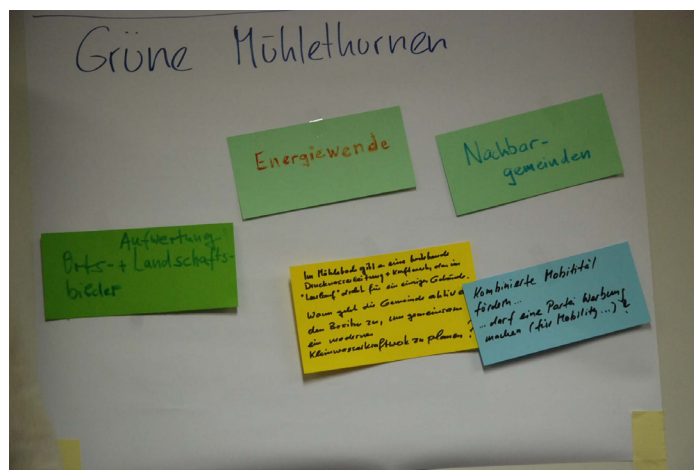 Grüne Mühlethurnen
Energiewende
Nachbar-
gemeinden
Aufwertung
Orts- + Landschafts-
bilder
Im Mühlebach gibt es eine bestehende
Druckwasserleitung + Kraftwerk, das im
"Leerlauf" dreht für ein einziges Gebäude.
Wann geht die Gemeinde aktiv auf
den Besitzer zu, um gemeinsam
ein modernes
Kleinwasserkraftwerk zu planen?
Kombinierte Mobilität
fördern...
... darf eine Partei Werbung
machen (für Mobility...)?